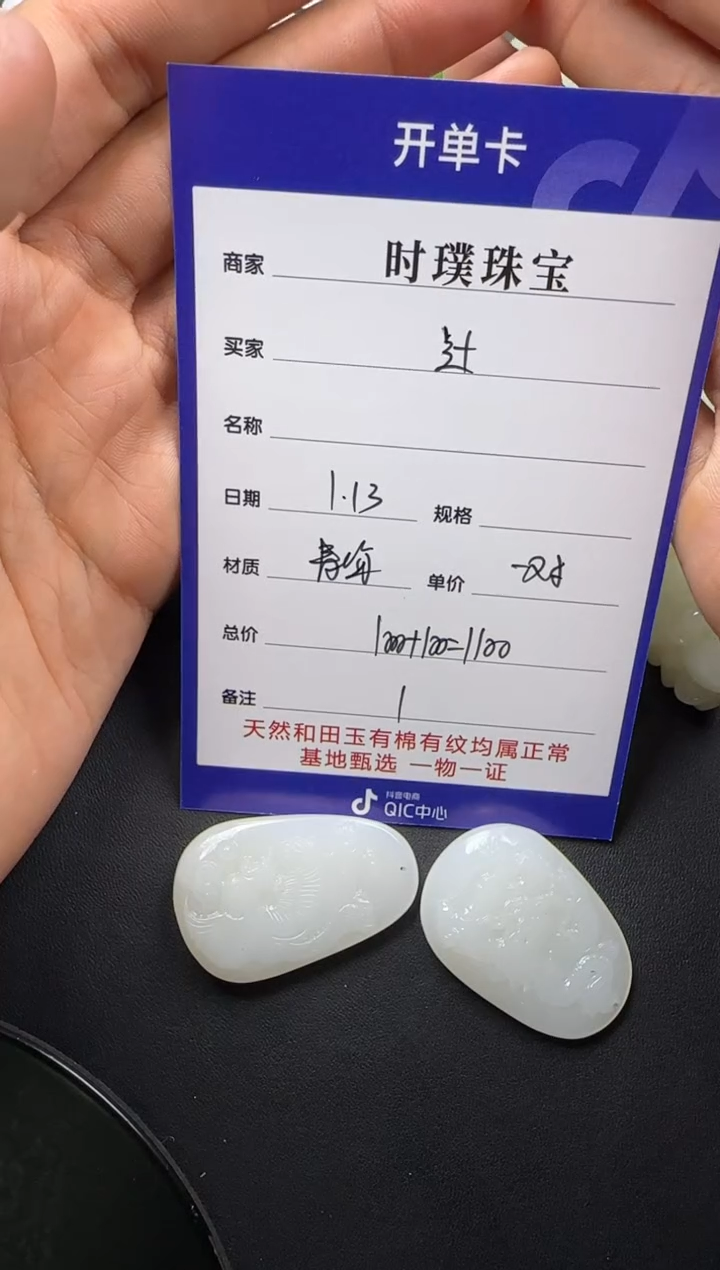 开单卡
商家 时璞珠宝
买家
名称
日期 1.13 规格
材质 青海 单价 一对
总价 1000+100=1100
备注 1
天然和田玉有棉有纹均属正常
基地甄选 一物一证
抖音电商
QIC中心